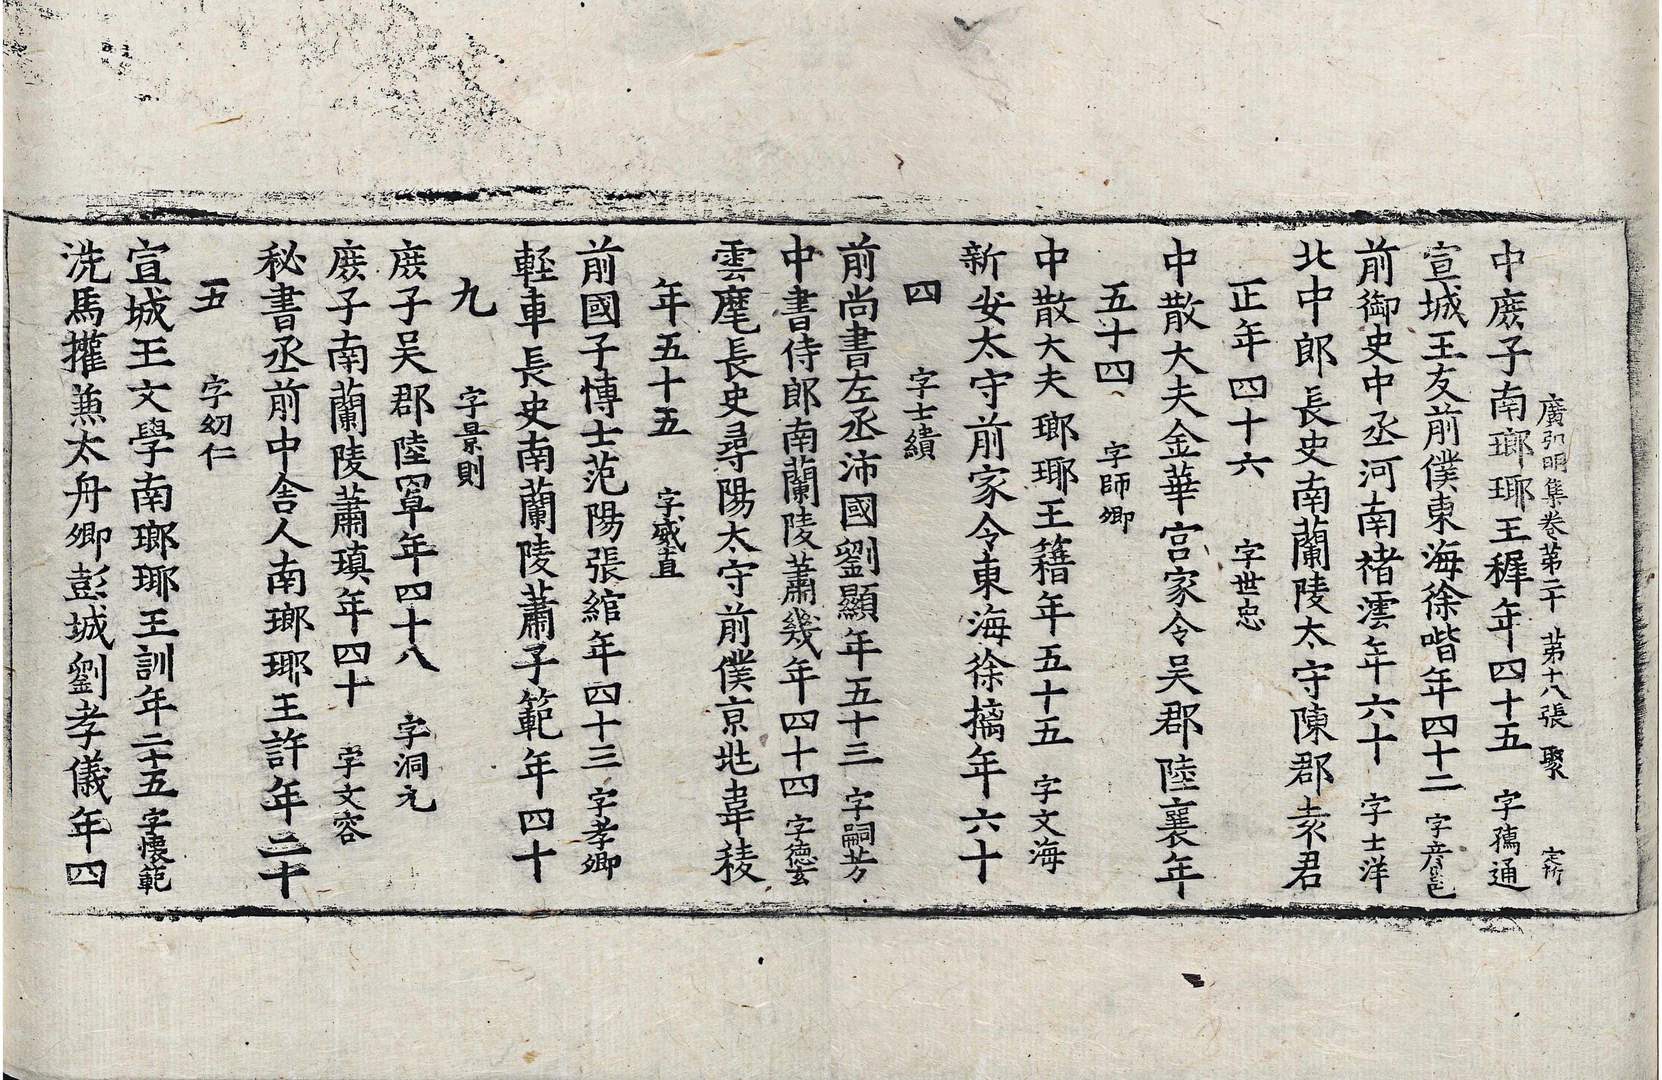 廣弘明集卷第二十 苐十八張 聚
中庻子南瑯瑘王稺年四十五 字孺通
宣城王友前僕東海徐喈年四十二 字彦邕
前御史中丞河南褚澐年六十 字士洋
北中郎長史南蘭陵太守陳郡袁君
正年四十六 字世忠
中散大夫金華宫家令吴郡陸襄年
五十四 字師卿
中散大夫瑯瑘王籍年五十五 字文海
新安太守前家令東海徐摛年六十
四 字士繢
前尚書左丞沛國劉顯年五十三 字嗣芳
中書侍郎南蘭陵蕭幾年四十四 字德玄
雲麾長史尋陽太守前僕京兆韋稜
年五十五 字威直
前國子博士范陽張綰年四十三 字孝卿
輊車長史南蘭陵蕭子範年四十
九 字景則
庻子吴郡陸罩年四十八 字洞元
庻子南蘭陵蕭瑱年四十 字文容
秘書丞前中舎人南瑯瑘王許年二十
五 字幼仁
宣城王文學南瑯瑘王訓年二十五 字懷範
洗馬攉兼太舟卿彭城劉孝儀年四